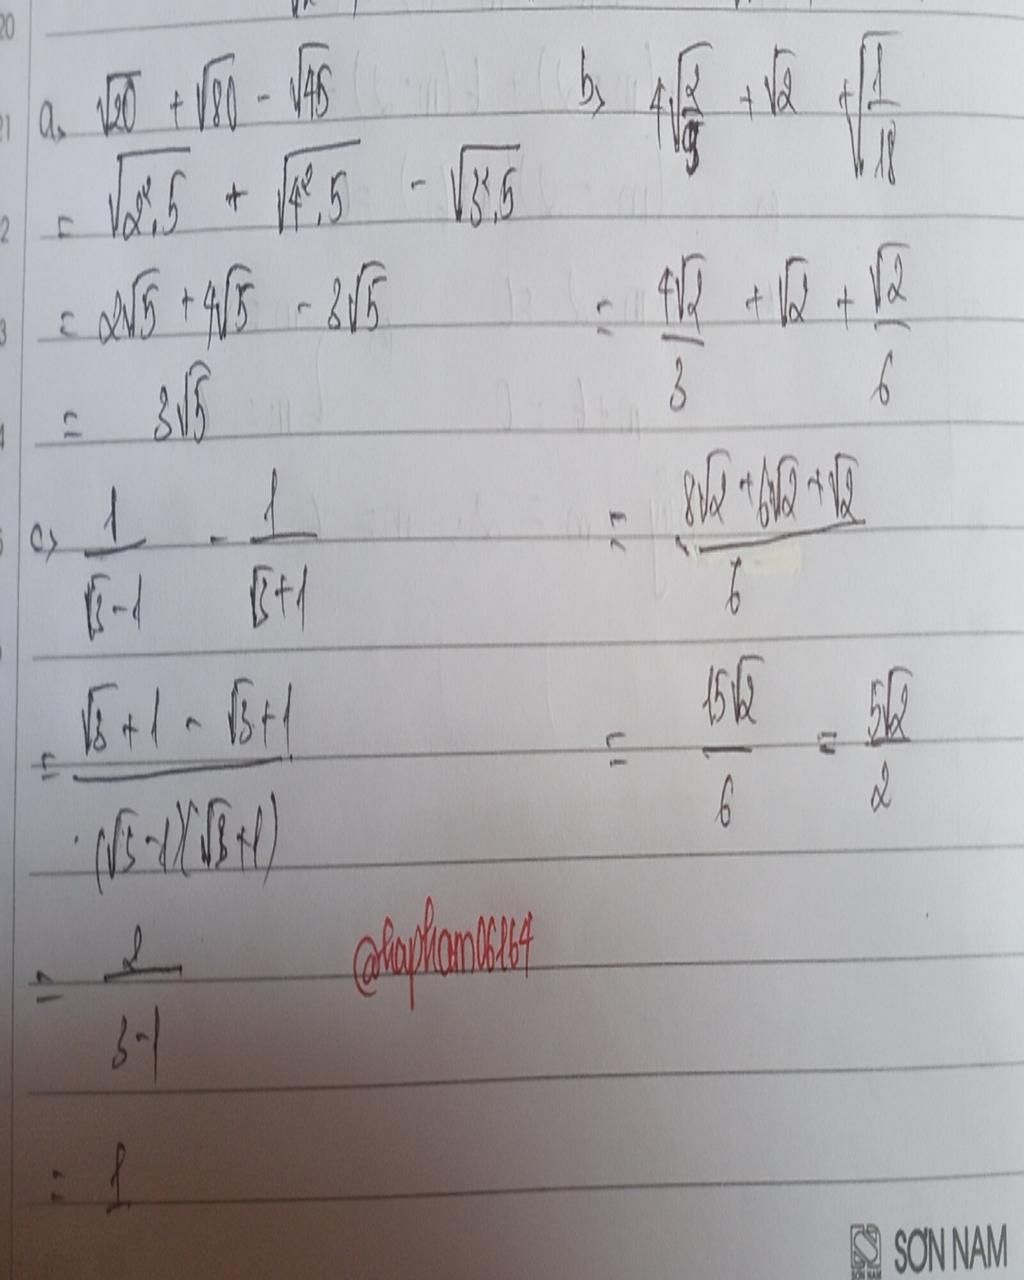 a, √20 + √80 - √45
= √2².5 + √4².5 - √3².5
= 2√5 + 4√5 - 3√5
= 3√5
b, 4√2/9 + √2 + √1/18
= 4√2/3 + √2 + √2/6
= 8√2 + 6√2 + √2/6
= 15√2/6 = 5√2/2
c, 1/√3-1 - 1/√3+1
= √3+1 - √3+1/(√3-1)(√3+1)
= 2/3-1
= 1
@hapham06264
SƠN NAM